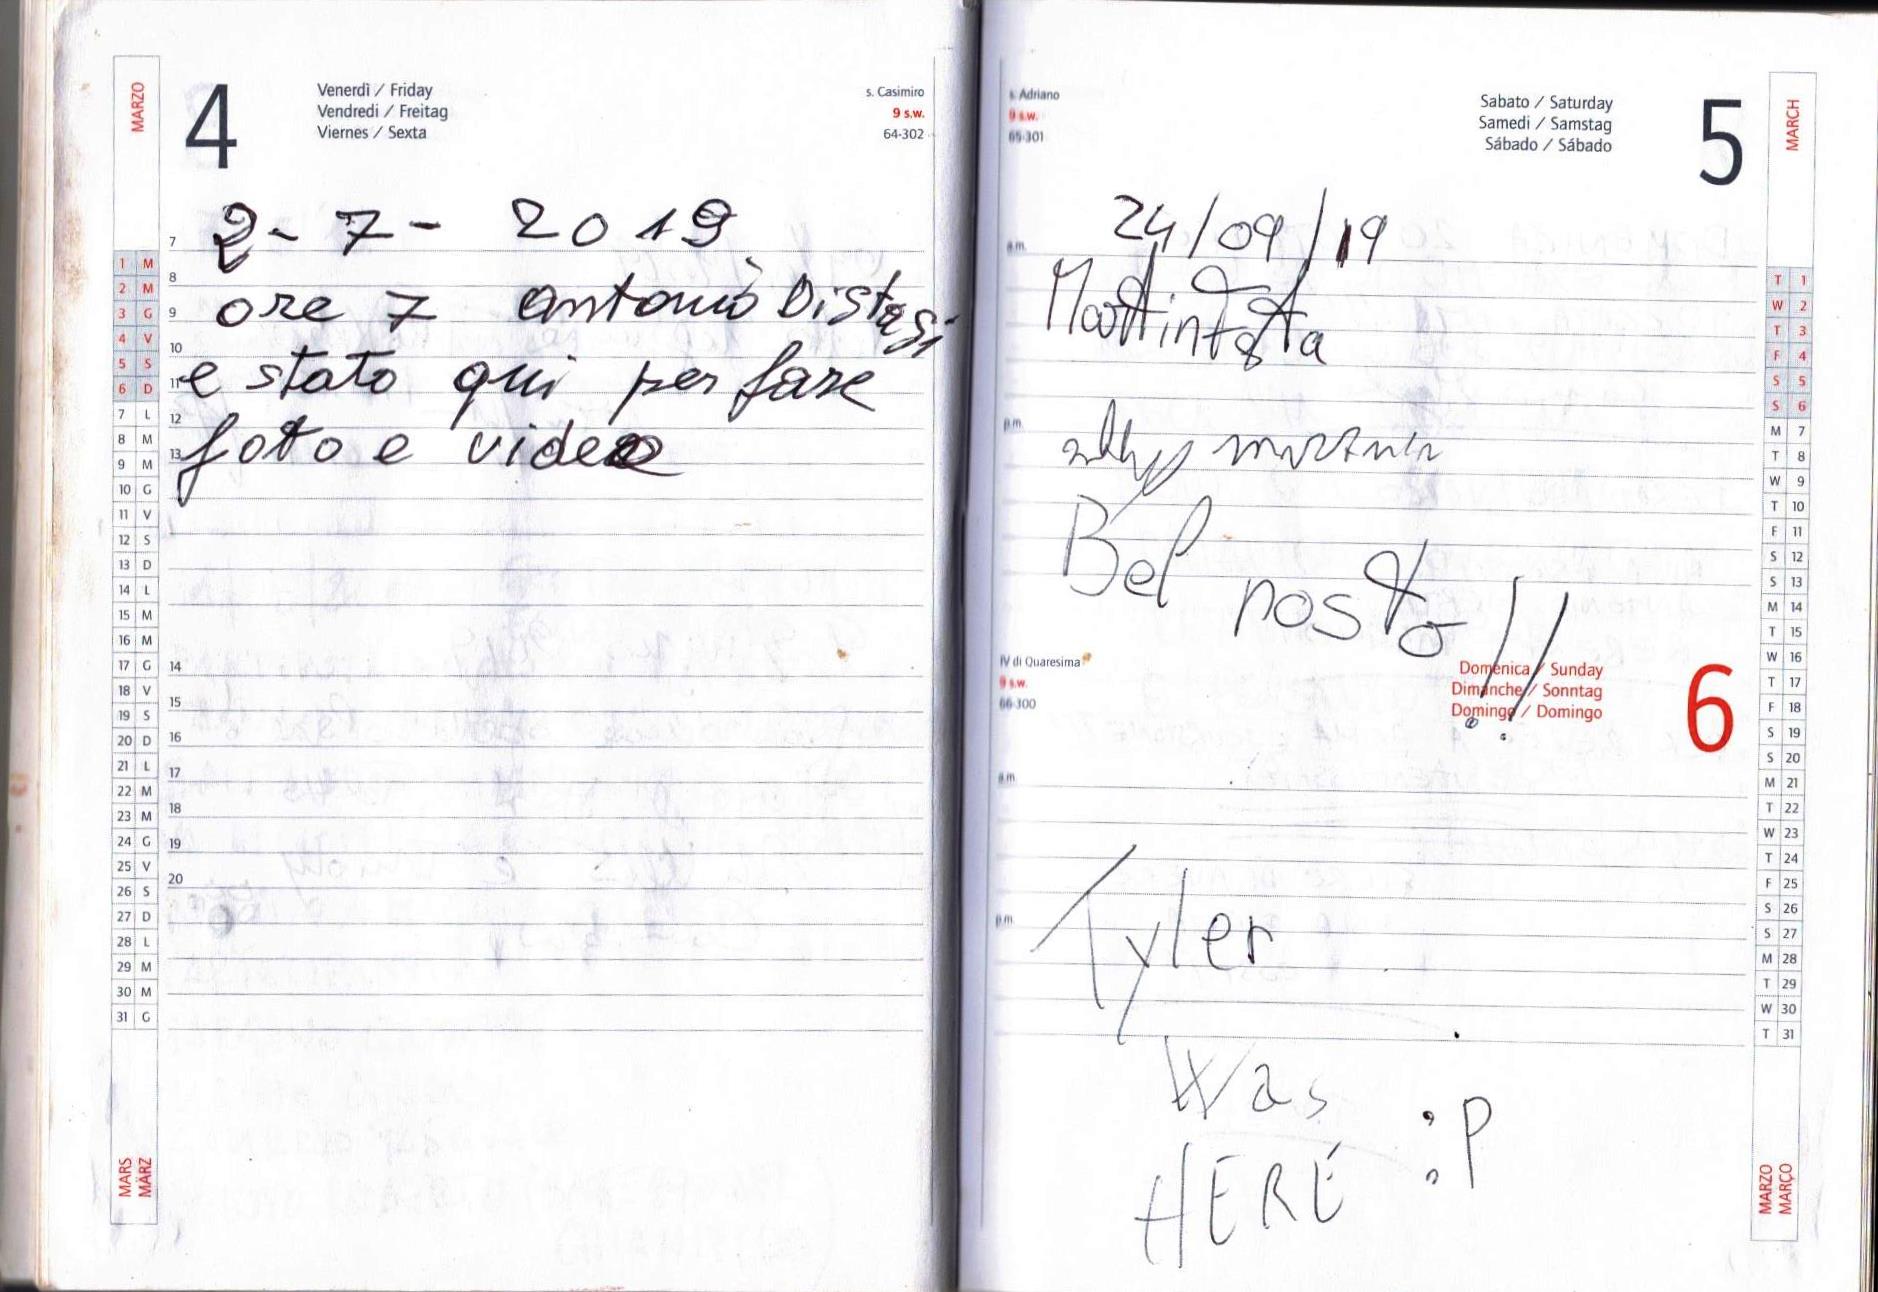 MARZO
4
Venerdì / Friday
Vendredi / Freitag
Viernes / Sexta
s. Casimiro
9 s.w.
64-302
2-7-2019
ore 7 antonio Distasi
e stato qui per fare
foto e video
7
8
9
10
11
12
13
14
15
16
17
18
19
20
1 M
2 M
3 G
4 V
5 S
6 D
7 L
8 M
9 M
10 G
11 V
12 S
13 D
14 L
15 M
16 M
17 G
18 V
19 S
20 D
21 L
22 M
23 M
24 G
25 V
26 S
27 D
28 L
29 M
30 M
31 G
MARS
MÄRZ
s. Adriano
9 s.w.
65-301
Sabato / Saturday
Samedi / Samstag
Sábado / Sábado
5
MARCH
24/09/19
a.m.
p.m.
Bel posto!!
IV di Quaresima
9 s.w.
66-300
Domenica / Sunday
Dimanche / Sonntag
Domingo / Domingo
6
a.m.
p.m.
Tyler
Was
HERE :P
T 1
W 2
T 3
F 4
S 5
S 6
M 7
T 8
W 9
T 10
F 11
S 12
S 13
M 14
T 15
W 16
T 17
F 18
S 19
S 20
M 21
T 22
W 23
T 24
F 25
S 26
S 27
M 28
T 29
W 30
T 31
MARZO
MARÇO